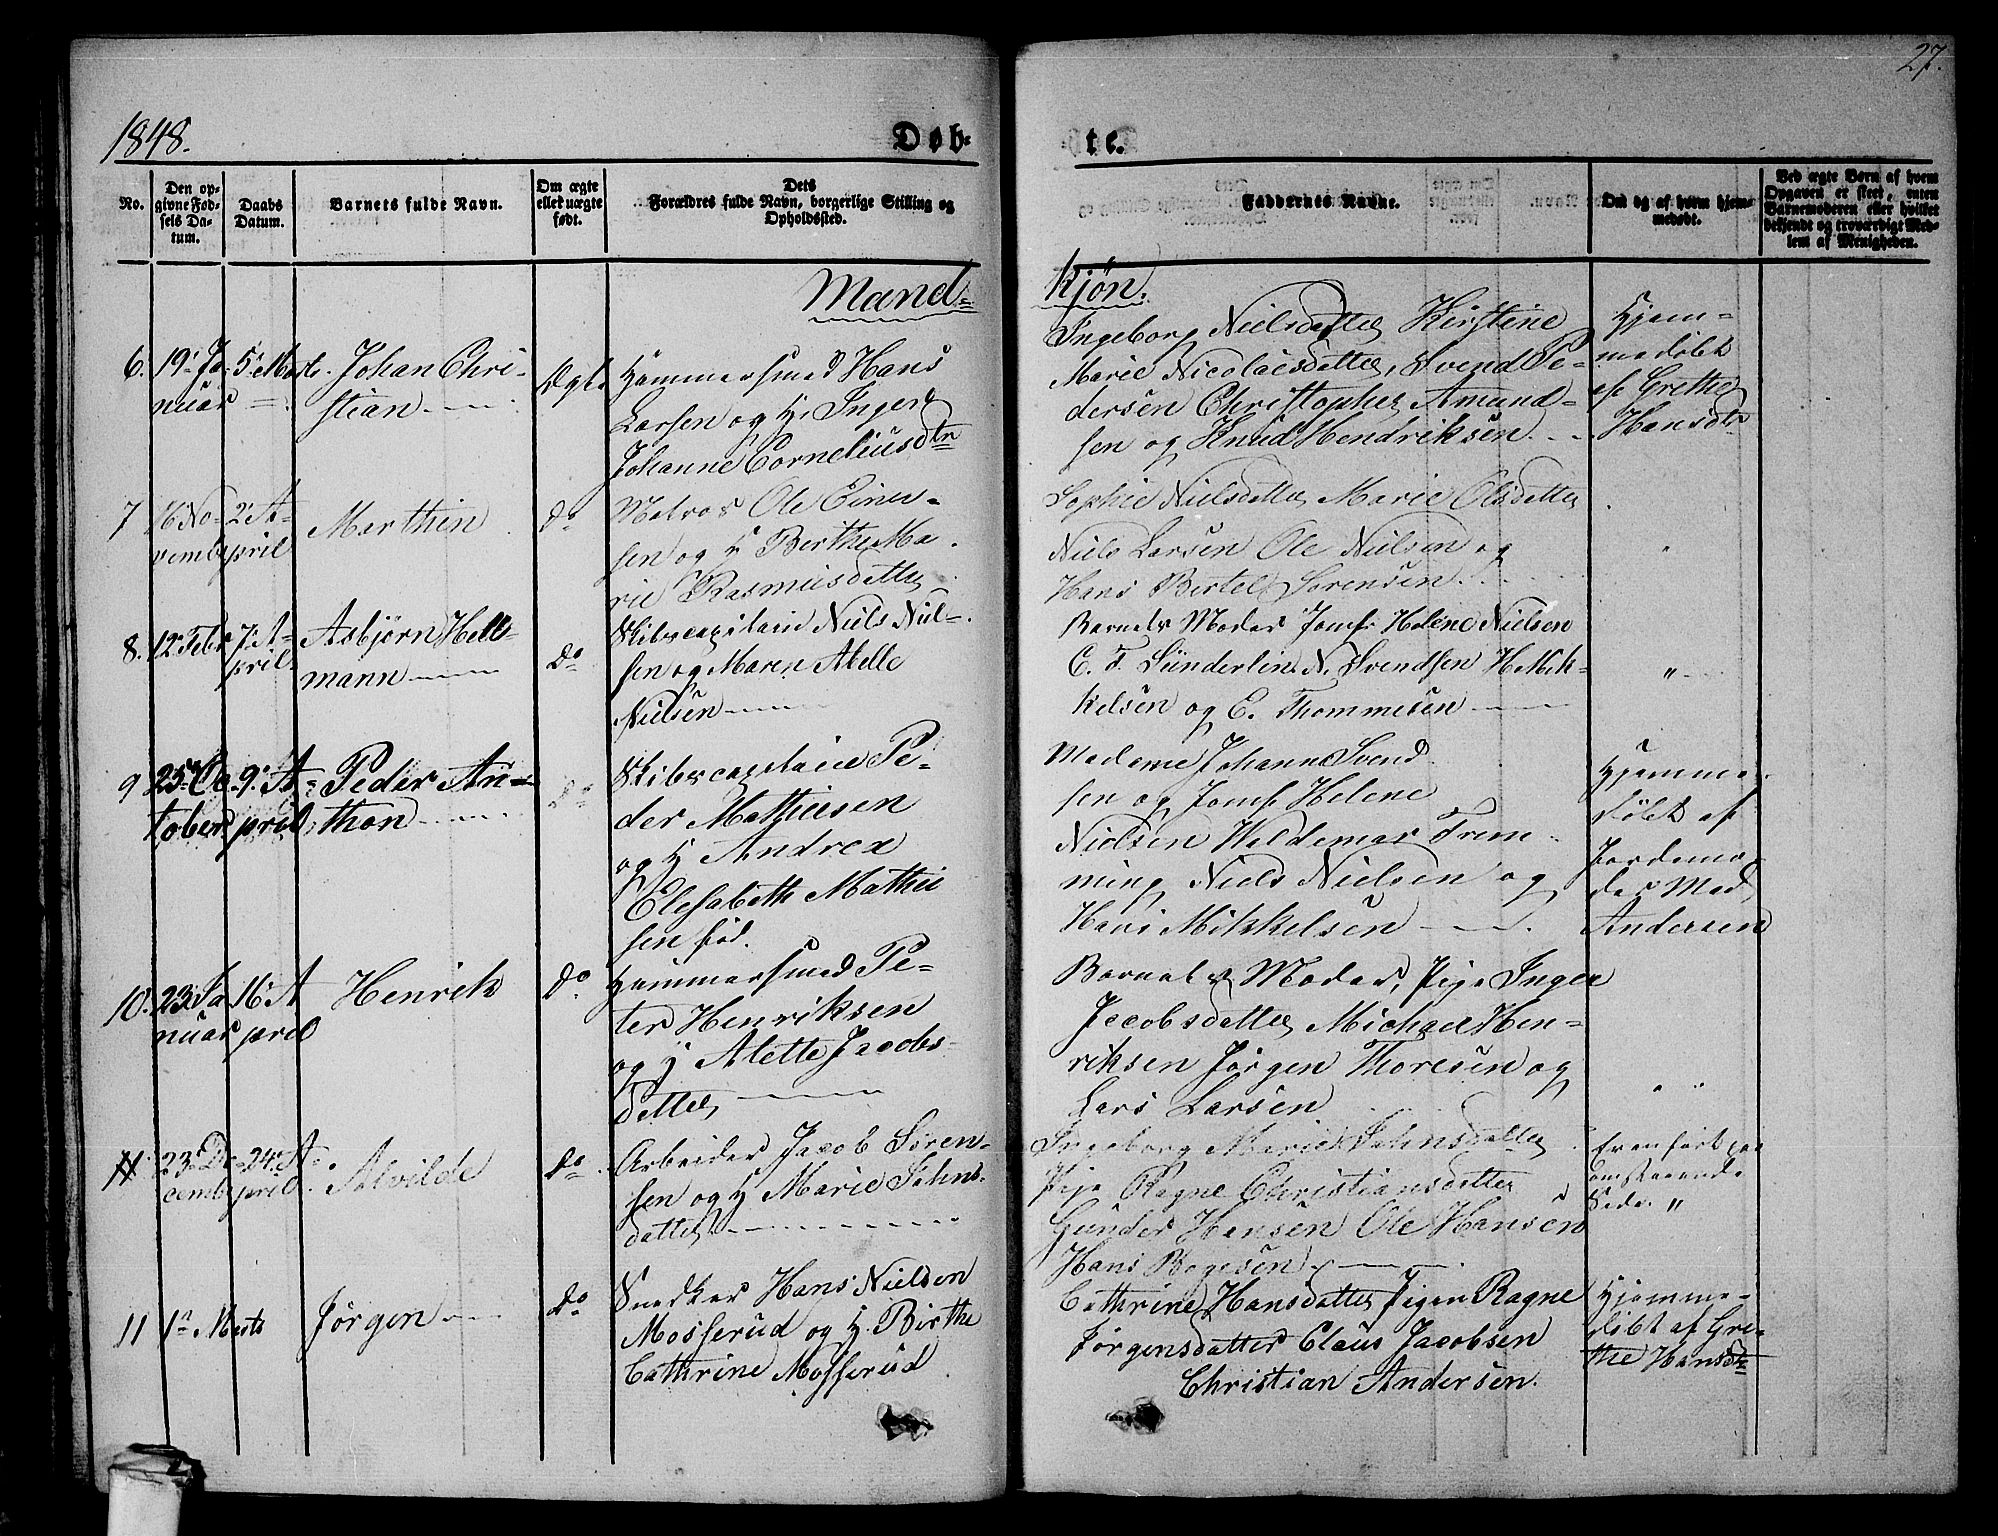 27.
1848.
Døb-
te.
No.
Den op-
givne Fød-
sels Da-
tum.
Daabs
Datum.
Barnets fulde Navn.
Om ægte
eller uægte
født.
Dets
Forældres fulde Navn, borgerlige Stilling og
Opholdssted.
Faddernes Navne.
Om og af hvem hjem-
medøbt.
Ved ægte Børn af hvem
Opgaven er skeet, enten
Barnemoderen eller hvilket
bekjendt og troværdigt Med-
lem af Menigheden.
Mand-
Kjøn.
6.
19. Ja-
nuar
5. Marts.
Johan Chri-
stian
Ægte
Hammersmed Hans
Larsen og H. Inger
Johanne Corneliusdtr
Ingeborg Nielsdatter Kirstine
Marie Nicolaisdatter, Svend Pe-
dersen Christopher Amund-
sen og Knud Hendriksen
Hjem-
medøbt
af Grethe
Hansdtr
7
16 No-
vember
2. A-
pril
Marthin
Do
Matros Ole Einer-
sen og H Berthe Ma-
rie Rasmusdatter
Sophie Nielsdatter Marie Olsdatter
Niels Larsen Ole Nielsen og
Hans Bertel Sørensen
"
8.
12. Febr
7. A-
pril
Asbjørn Hell-
mann
Do
Skibscapitain Niels Niel-
sen og Maren Abelle
Nielsen
Barnets Moder Jomf. Helene Nielsen
C. F. Sünderlin. N. Svendsen H Mik-
kelsen og C. Thommesen
"
9
25. Oc-
tober
9. A-
pril
Peder An-
thon
Do
Skibscapitain Pe-
der Mathiesen
og H Andrea
Elisabeth Mathie
sen fød.
Madame Johanne Svend
sen og Jomf. Helene
Nielsen Waldemar Frem-
ming Niels Nielsen og
Hans Mikkelsen
Hjemme-
døbt af
Jordemo-
der Mad.
Andersen
10.
23. Ja
nuar
16. A
pril
Henrik
Do
Hammersmed Pe-
ter Henriksen
og H Alette Jacobs-
datter
Barnets Moder, Pige Inger
Jacobsdatter Michael Hen-
riksen Jørgen Thoresen og
Lars Larsen
" "
11
23. De-
cember
24. A-
pril
Alvilde
Do
Arbeider Jacob Søren-
sen og H Marie Jahns-
datter
Ingeborg Marie Jahnsdatter
Pige Ragne Christiansdatter
Gunder Hansen Ole Hansen
Hans Bogesen
Erenført paa
omstaaende
Side. "
11
1. Marts
Jørgen
Do
Snedker Hans Nielsen
Mosserud og H. Birthe
Cathrine Mosserud
Cathrine Hansdatter Pigen Ragne
Jørgensdatter Claus Jacobsen
Christian Andersen.
Hjemme-
døbt af Gre-
the Hansdtr